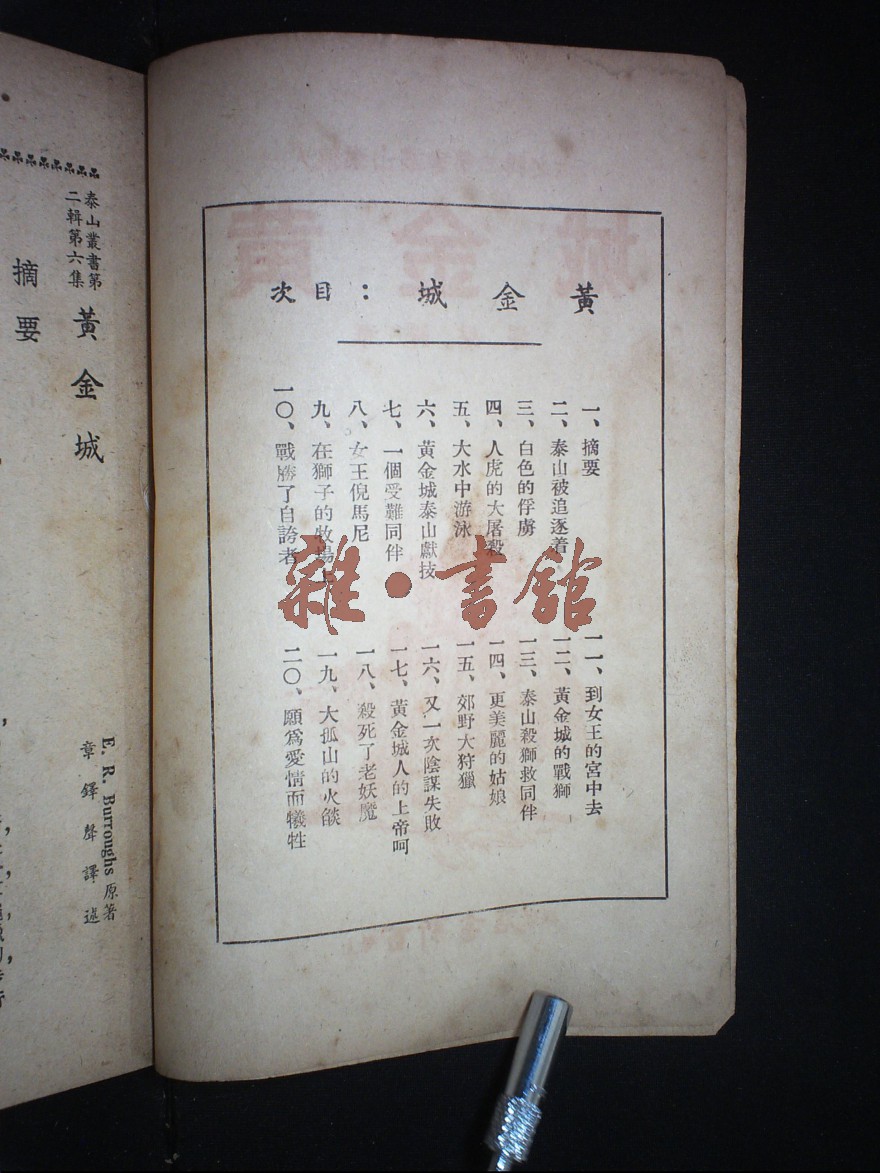 黃金城：目次
一、摘要
二、泰山被追逐着
三、白色的俘虜
四、人虎的大屠殺
五、大水中游泳
六、黃金城泰山獻技
七、一個受難同伴
八、女王倪馬尼
九、在獅子的牧場上
一〇、戰勝了自誇者
一一、到女王的宮中去
一二、黃金城的戰獅
一三、泰山殺獅救同伴
一四、更美麗的姑娘
一五、郊野大狩獵
一六、又一次陰謀失敗
一七、黃金城人的上帝呵
一八、殺死了老妖魔
一九、大孤山的火燄
二〇、願爲愛情而犧牲
雜·書館
泰山叢書第
二輯第六集
黃金城
E. R. Burroughs 原著
章鐸聲譯述
摘要